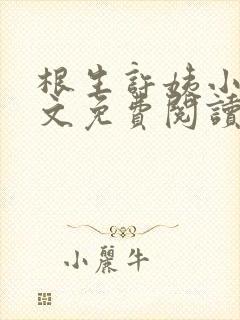 根生許姨小
文免費閱讀
小麗牛